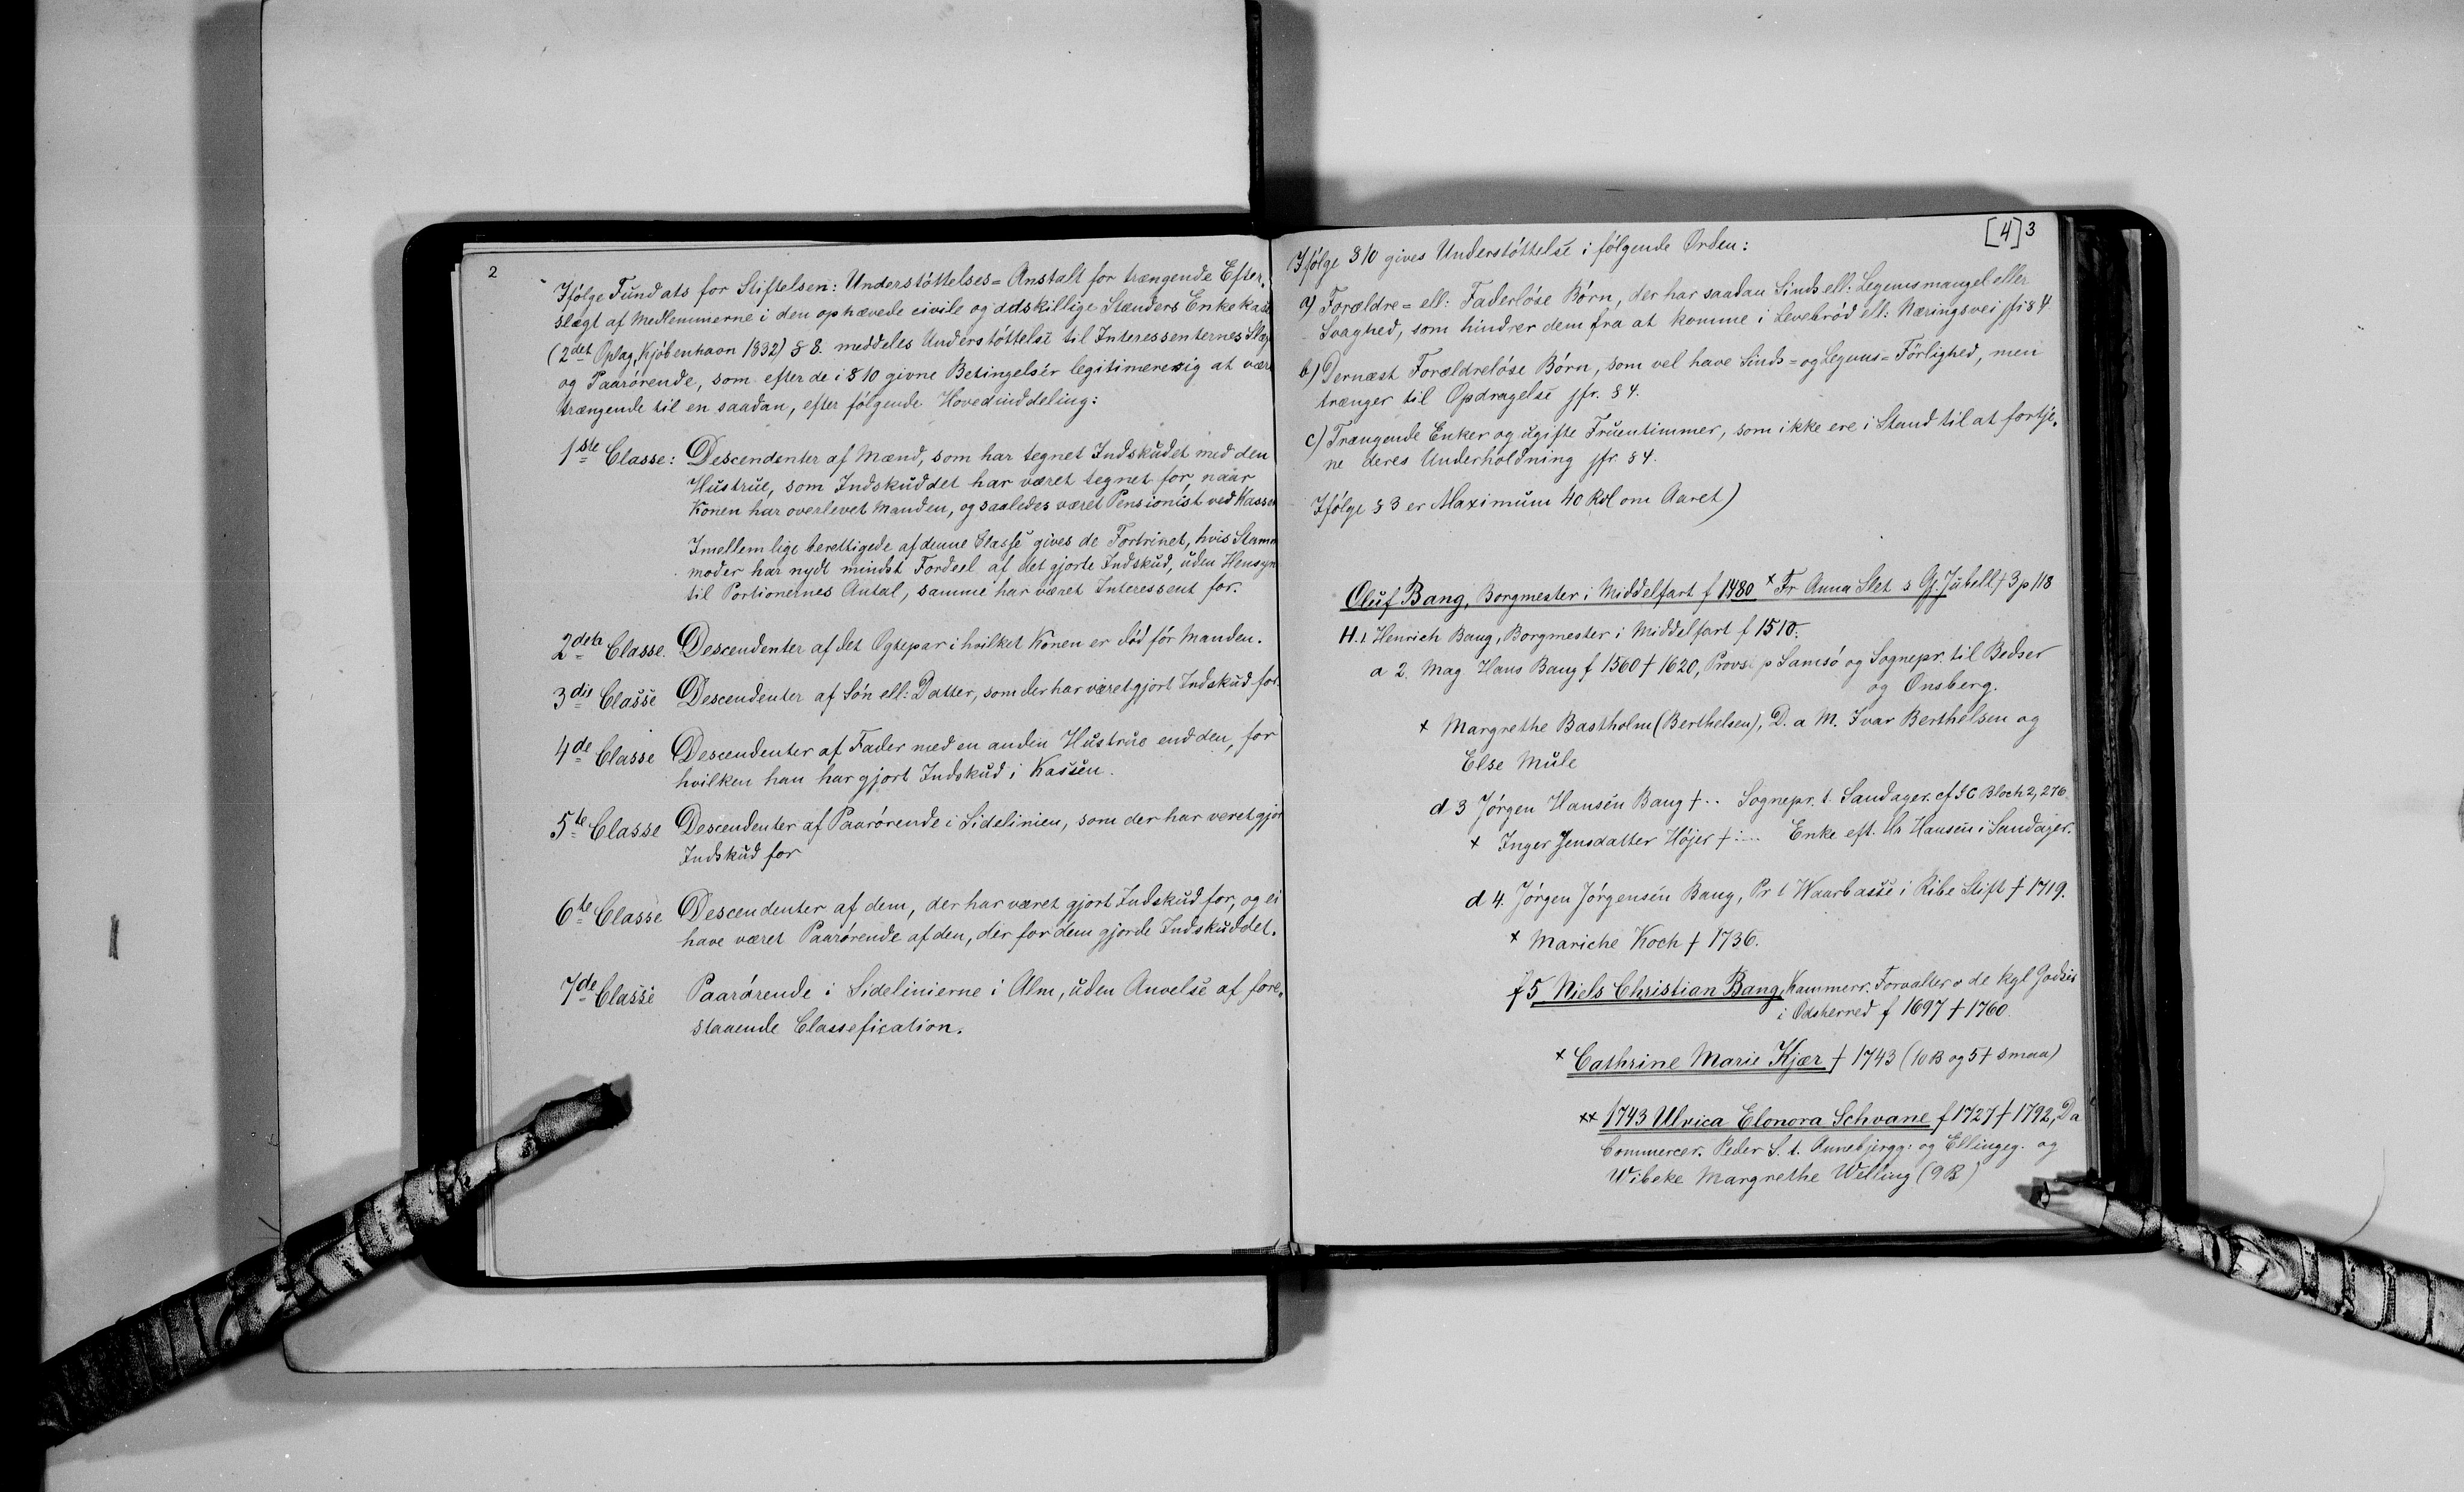 2
Ifølge Fundats for Stiftelsen: Understøttelses= Anstalt for trængende Efter,
slægt af Medlemmerne i den ophævede civile og adskillige Stænders Enkekasse
(2det Oplag, Kjøbenhavn 1832) § 8. meddeles Understøttelse til Interessenternes Slægt
og Paarørende, som efter de i § 10 givne Betingelser legitimere sig at være
trængende til en saadan, efter følgende Hovedinddeling:
1ste Classe: Descendenter af Mænd, som har tegnet Indskudet med den
Hustrue, som Indskuddet har været tegnet for, naar
Konen har overlevet Manden, og saaledes været Pensionist ved Kassen
Imellem lige berettigede af denne Classe gives de Fortrinet, hvis Stam
moder har nydt mindst Fordeel af det gjorte Indskud, uden Hensyn
til Portionernes Antal, samme har været Interessent for.
2den Classe. Descendenter af det Ægtepar i hvilket Konen er død før Manden.
3die Classe Descendenter af Søn ell: Datter, som der har været gjort Indskud for.
4de Classe Descendenter af Fader med en anden Hustrue end den, for
hvilken han har gjort Indskud i Kassen.
5te Classe Descendenter af Paarørende i Sidelinien, som der har veret gjort
Indskud for
6te Classe Descendenter af dem, der har været gjort Indskud for, og ei
have været Paarørende af den, der for dem gjorde Indskuddet.
7de Classe Paarørende i Sidelinierne i Alm, uden Anvelse af fore,
staaende Classefication.
[4] 3
Ifølge § 10 gives Understøttelse i følgende Orden:
a) Forældre= ell: Faderløse Børn, der har saadan Sinds ell: Legemsmangel eller
Svaghed, som hindrer dem fra at komme i Levebrød ell: Næringsvei jfr § 4
b) Dernæst Forældreløse Børn, som vel have Sinds= og Legems= Førlighed, men
trænger til Opdragelse jfr. § 4.
c) Trængende Enker og ugifte Fruentimmer, som ikke ere i Stand til at fortje,
ne deres Underholdning jfr § 4.
Ifølge § 3 er Maximum 40 Rdl om Aaret)
Oluf Bang, Borgmester i Middelfart f 1480 x Fr Anna Slet s Gj. Jubell. f 3 p 118
H. 1 Henrich Bang, Borgmester i Middelfart f 1510.
a 2. Mag Hans Bang f 1560 † 1620, Provst p Samsø og Sognepr. til Bedser
og Onsberg.
x Margrethe Bastholm (Berthelsen), D. a M. Ivar Berthelsen og
Else Mule
d 3 Jørgen Hansen Bang †.. Sognepr. t. Sandager. cf J C Bloch 2, 276
x Inger Jensdatter Højer †.... Enke eft. Hr Hansen i Sandager.
d 4. Jørgen Jørgensen Bang, Pr t Waarbasse i Ribe Stift † 1719.
x Mariche Koch † 1736.
f 5 Niels Christian Bang, Kammerr. Forvalter o de kgl Godser
i Odsherred f 1697 † 1760.
x Cathrine Marie Kjær † 1743 (10 B og 5 † smaa)
xx 1743 Ulrica Elonora Schvane f 1727 † 1792, D a
Commercer. Peder S. t. Annebjergg: og Ellingeg. og
Wibeke Margrethe Welling (9 B)